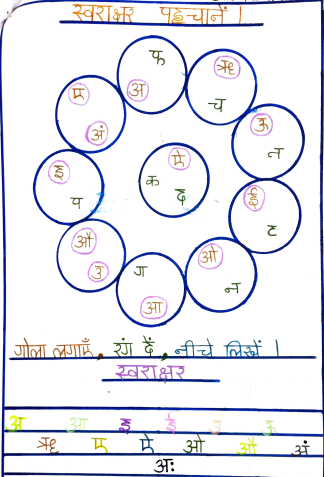 स्वराक्षर पहचानें ।
फ
अ
ऋ
च
ए
अं
ऊ
त
ऐ
क
द
इ
प
ई
ह
औ
उ
ग
आ
ओ
न
गोला लगाएँ, रंग दें, नीचे लिखें ।
स्वराक्षर
अ आ इ ई उ ऊ
ऋ ए ऐ ओ औ अं
अः